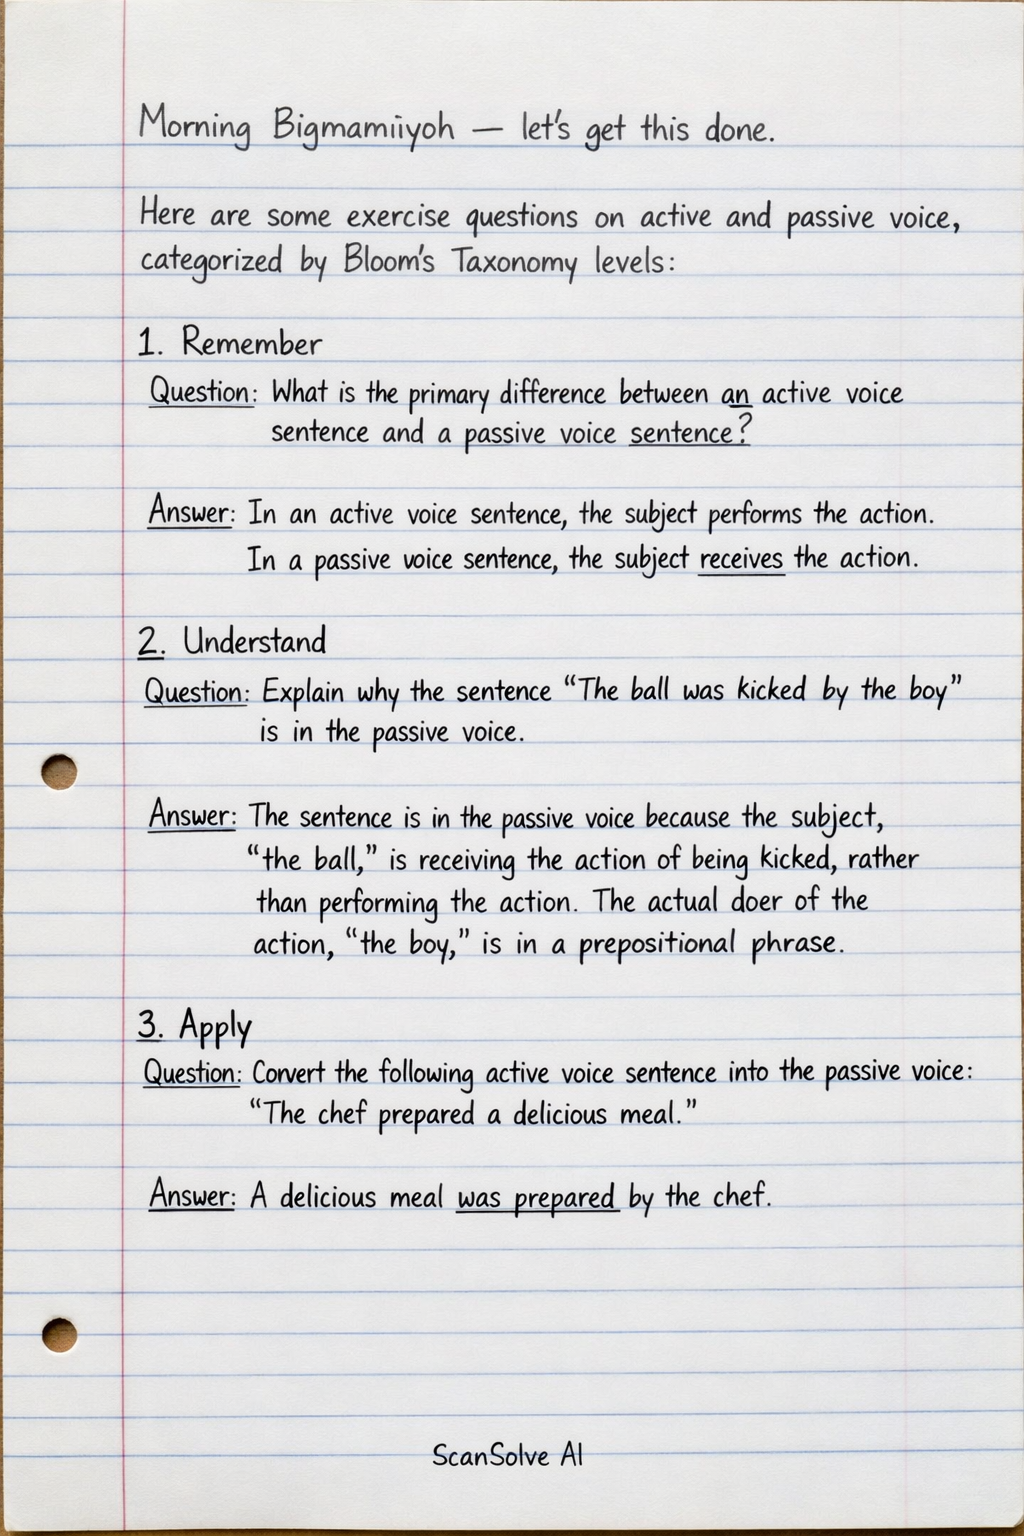 Morning Bigmamiiyoh — let's get this done.
Here are some exercise questions on active and passive voice,
categorized by Bloom's Taxonomy levels:
1. Remember
Question: What is the primary difference between an active voice
sentence and a passive voice sentence?
Answer: In an active voice sentence, the subject performs the action.
In a passive voice sentence, the subject receives the action.
2. Understand
Question: Explain why the sentence “The ball was kicked by the boy”
is in the passive voice.
Answer: The sentence is in the passive voice because the subject,
“the ball,” is receiving the action of being kicked, rather
than performing the action. The actual doer of the
action, “the boy,” is in a prepositional phrase.
3. Apply
Question: Convert the following active voice sentence into the passive voice:
“The chef prepared a delicious meal.”
Answer: A delicious meal was prepared by the chef.
ScanSolve AI